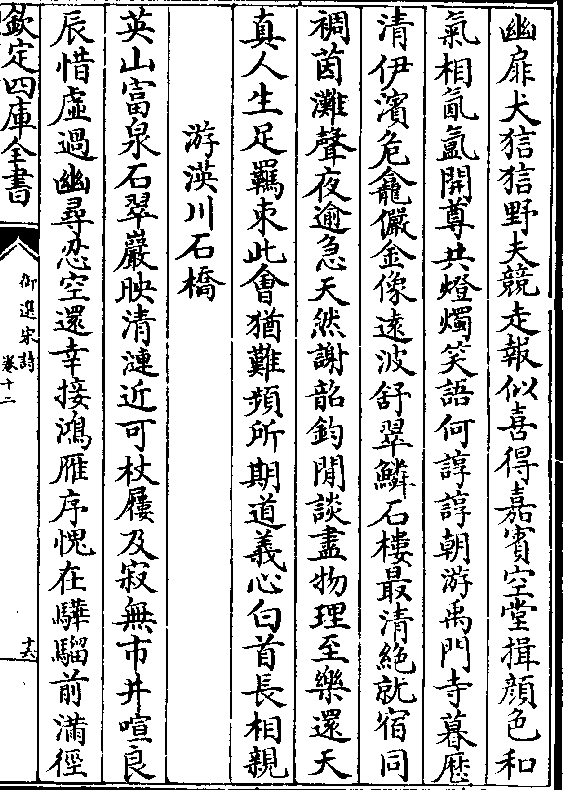 幽扉犬狺狺野夫競走報似喜得嘉賓空堂揖顔色和
氣相氤氲開尊共燈燭笑語何諄諄朝游禹門寺暮歷
清伊濱危龕儼金像遠波舒翠鱗石樓最清絶就宿同
裯茵灘聲夜逾急天然謝韶鈞閒談盡物理至樂還天
真人生足羈束此會猶難頻所期道義心白首長相親
游渶川石橋
英山富泉石翠巖映清漣近可杖屨及寂無市井喧良
辰惜虛過幽尋恐空還幸接鴻雁序愧在驊騮前滿徑
欽定四庫全書
御選宋詩
卷十二
十六